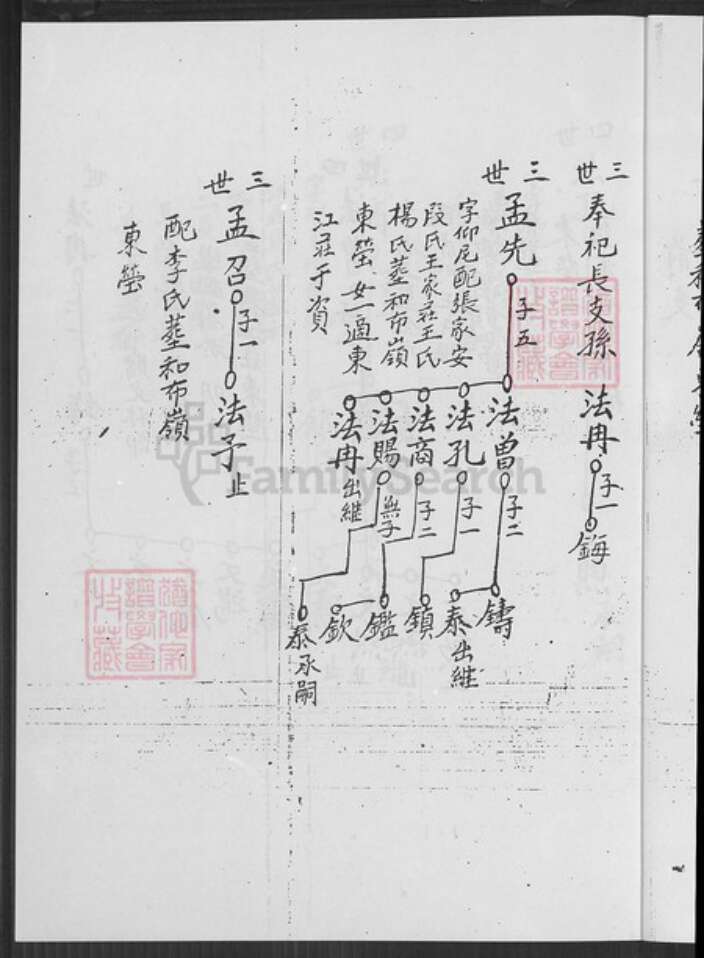 三世
奉祀長支孫 法冉 子一
鋂
三世
孟先 子五
字仰尼配張家安
段氏王家莊王氏
楊氏塟和布嶺
東塋女一適東
江莊于資
法曾 子二
法孔 子一
法商 子二
法賜 無子
法冉出継
鑄
泰出継
鎖
鑑
欽
泰承嗣
三世
孟召 子一
法予止
配李氏塟和布嶺
東塋
FamilySearch